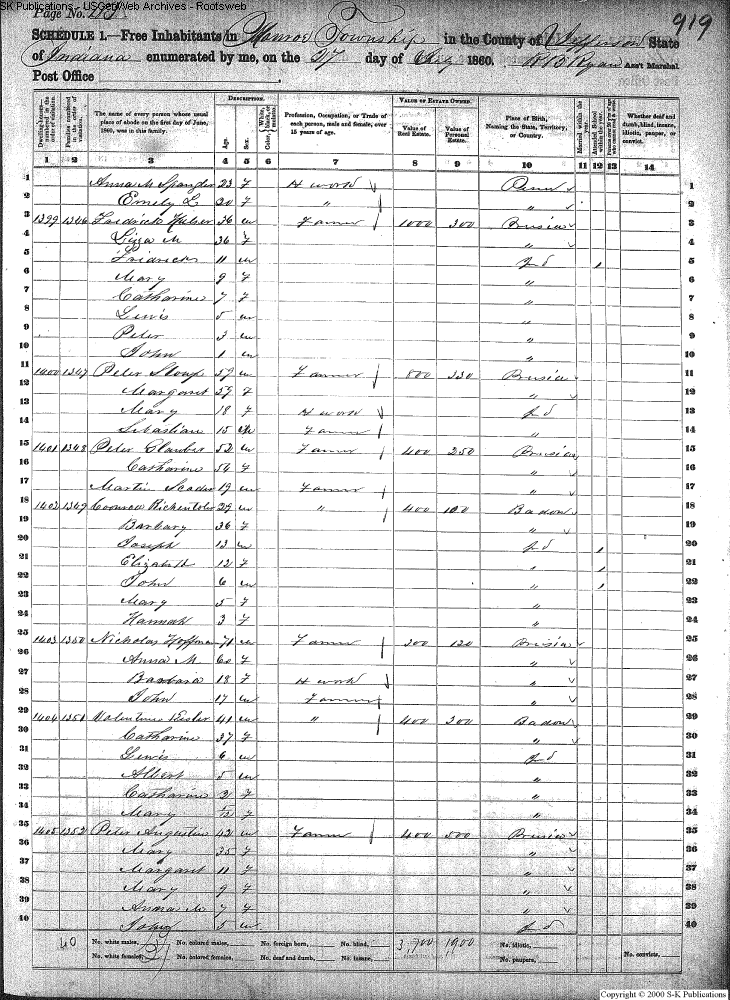 SK Publications - USGenWeb Archives - Rootsweb
Page No.
919
SCHEDULE 1.—Free Inhabitants in Monroe Township in the County of Jefferson State
of Indiana enumerated by me, on the 27 day of Aug 1860. Ryan Ass't Marshal.
Post Office
Dwelling-houses—numbered in the order of visitation.
Families numbered in the order of visitation.
The name of every person whose usual place of abode on the first day of June, 1860, was in this family.
DESCRIPTION.
Age.
Sex.
White, black, or mulatto. Color,
Profession, Occupation, or Trade of each person, male and female, over 15 years of age.
VALUE OF ESTATE OWNED.
Value of Real Estate.
Value of Personal Estate.
Place of Birth, Naming the State, Territory, or Country.
Married within the year.
Attended School within the year.
Whether deaf and dumb, blind, insane, idiotic, pauper, or convict.
1 2 3 4 5 6 7 8 9 10 11 12 13 14
1 Anna M Spangler 23 f H work Penn 1
2 Emely L 20 f " " 2
3 1399 1346 Fredrick 36 m Farmer 1000 300 Prusia 3
4 Liza M 36 f " 4
5 Fridrick 11 m Ind 1 5
6 Mary 9 f " 6
7 Catharine 7 f " 7
8 Lewis 5 m " 8
9 Peter 3 m " 9
10 John 1 m " 10
11 1400 1347 Peter 59 m Farmer 800 330 Prusia 11
12 Margaret 59 f " 12
13 Mary 18 f H work Ind 13
14 Sebastian 15 m Farmer " 14
15 1401 1348 Peter 52 m Farmer 400 250 Prusia 15
16 Catharine 54 f " 16
17 Martin 19 m Farmer " 17
18 1402 1349 29 m " 400 100 Badon 18
19 Barbary 36 f " 19
20 Joseph 13 m Ind 1 20
21 Elizabeth 12 f " 1 21
22 John 6 m " 1 22
23 Mary 5 f " 23
24 Hannah 3 f " 24
25 1403 1350 Nicholas Hoffman 71 m Farmer 300 120 Prusia 25
26 Anna M 60 f " 26
27 Barbara 18 f H work " 27
28 John 17 m Farmer " 28
29 1404 1351 Valentine 41 m " 400 200 Badon 29
30 Catharine 37 f " 30
31 Lewis 6 m Ind 31
32 Albert 5 m " 32
33 Catharine 2 f " 33
34 Mary f " 34
35 1405 1352 Peter Augustus 42 m Farmer 400 500 Prusia 35
36 Mary 35 f " 36
37 Margaret 11 f " 37
38 Mary 9 f " 38
39 Anna M 7 f " 39
40 John 5 m Ind 40
40 No. white males, No. colored males, No. foreign born, No. blind, 3,700 1900 No. idiotic,
No. white females, No. colored females, No. deaf and dumb, No. insane, No. paupers, No. convicts,
Copyright © 2000 S-K Publications